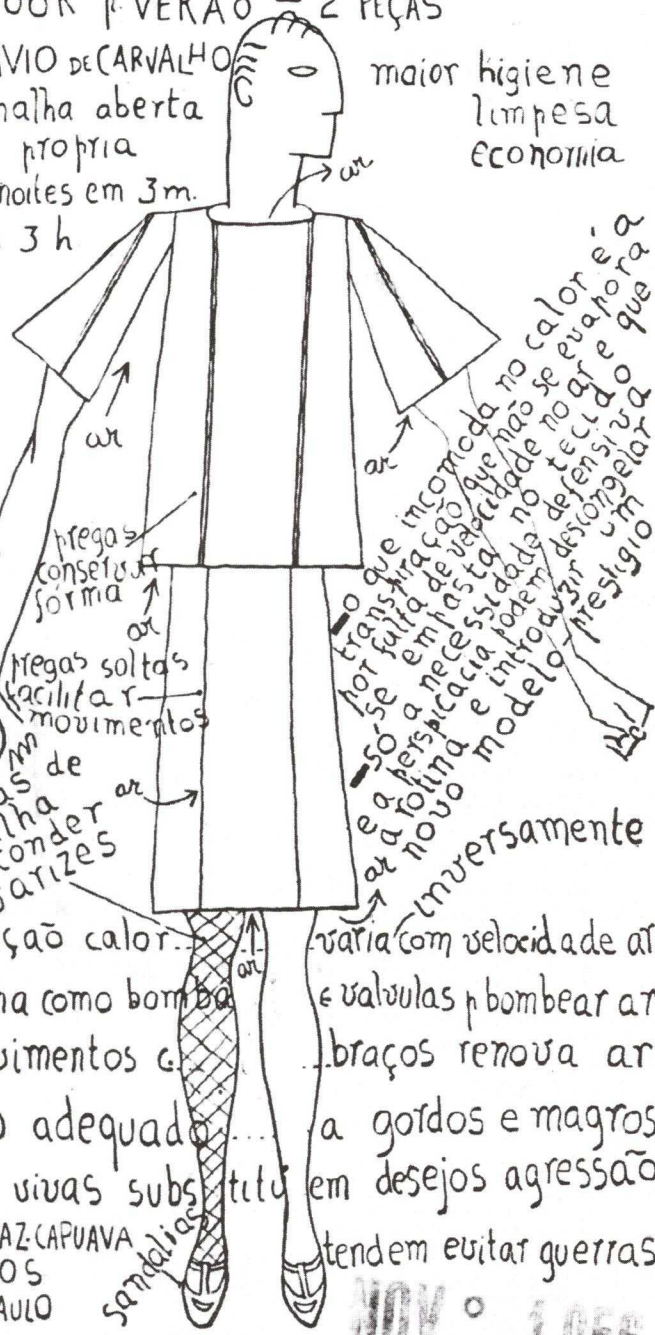 P. VERÃO — 2 PEÇAS
DE CARVALHO
malha aberta
propria
noites em 3m.
3 h
maior higiene
limpesa
economia
ar
ar
ar
pregas
conservar
fórma
ar
pregas soltas
facilitar
movimentos
ar
de
varizes
— o que incomoda no calor é a
transpiração que não se evapora
por falta de velocidade no ar e que
se empasta no tecido
— só a necessidade defensiva
e a perspicacia podem descongelar
a rotina e introduzir um
novo modelo-prestigio
ar
inversamente
calor..... varia com velocidade ar
ar
como bomba e valvulas p bombear ar
....braços renova ar
adequado .... a gordos e magros
vivas substituem desejos agressão
CAPUAVA
tendem evitar guerras
sandalias
NOV